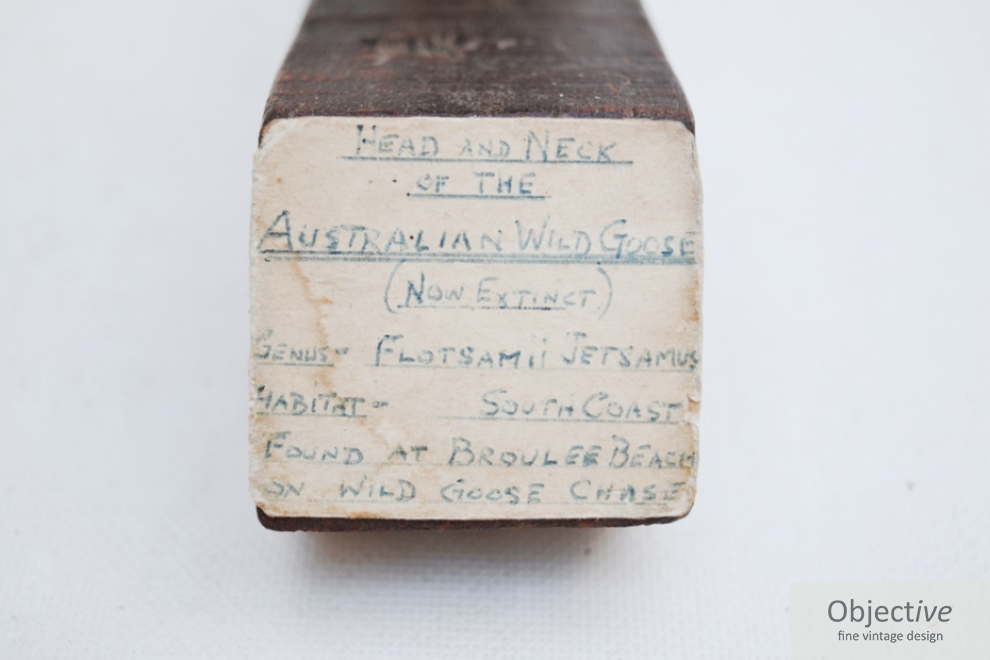 HEAD AND NECK
OF THE
AUSTRALIAN WILD GOOSE
(NOW EXTINCT)
GENUS- FLOTSAMII JETSAMUS
HABITAT- SOUTH COAST
FOUND AT BROULEE BEACH
ON WILD GOOSE CHASE
Objective
fine vintage design